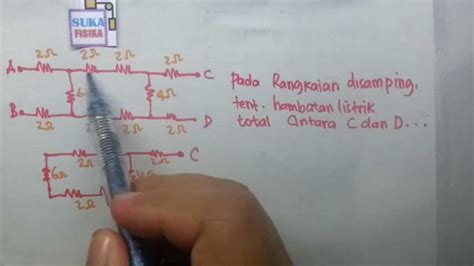 SUKA
FISIKA
2Ω 2Ω 2Ω 2Ω
A C
6 4Ω
B D
2Ω 2Ω 2Ω
Pada Rangkaian disamping,
tent. hambatan listrik
total antara C dan D...
2Ω 2Ω
C
6Ω
2Ω